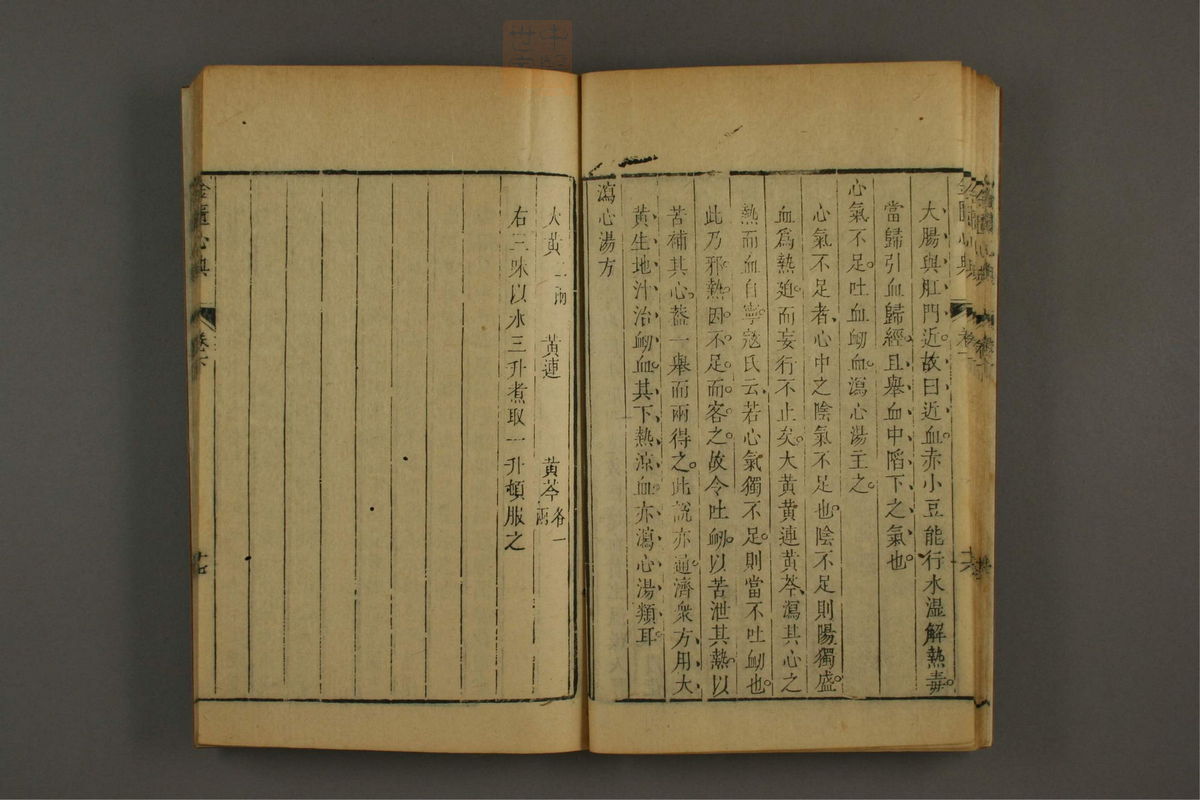 大腸與肛門近。故曰近血。赤小豆能行水濕解熱毒。
當歸引血歸經。且舉血中陷下之氣也。
心氣不足。吐血衂血。瀉心湯主之。
心氣不足者、心中之陰氣不足也。陰不足則陽獨盛。
血爲熱廹。而妄行不止矣。大黃黃連黃芩、瀉其心之
熱而血自寧。寇氏云、若心氣獨不足。則當不吐衂也。
此乃邪熱因不足而客之。故令吐衂。以苦泄其熱。以
苦補其心。葢一舉而兩得之。此說亦通。濟衆方、用大
黃生地汁治衂血。其下熱凉血亦瀉心湯類耳。
瀉心湯方
大黃二兩 黃連 黃芩各一兩
右三味以水三升煮取一升頓服之
金匱心典
卷下